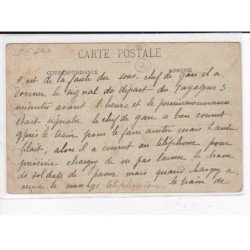 CARTE POSTALE
CORRESPONDANCE ADRESSE
C'est de la faute du sous chef de gare il a
donner le signal du départ du voyageurs 3
minutes avant l'heure et le permissionnaires
etait le chef de gare a bien courut
après le train pour le faire arrêter mais l'autre
filait, alors il a courut au téléphone pour
chargez de ne pas laisser le train
de soldats de passer mais quand chargez a
le message téléphonique le train de